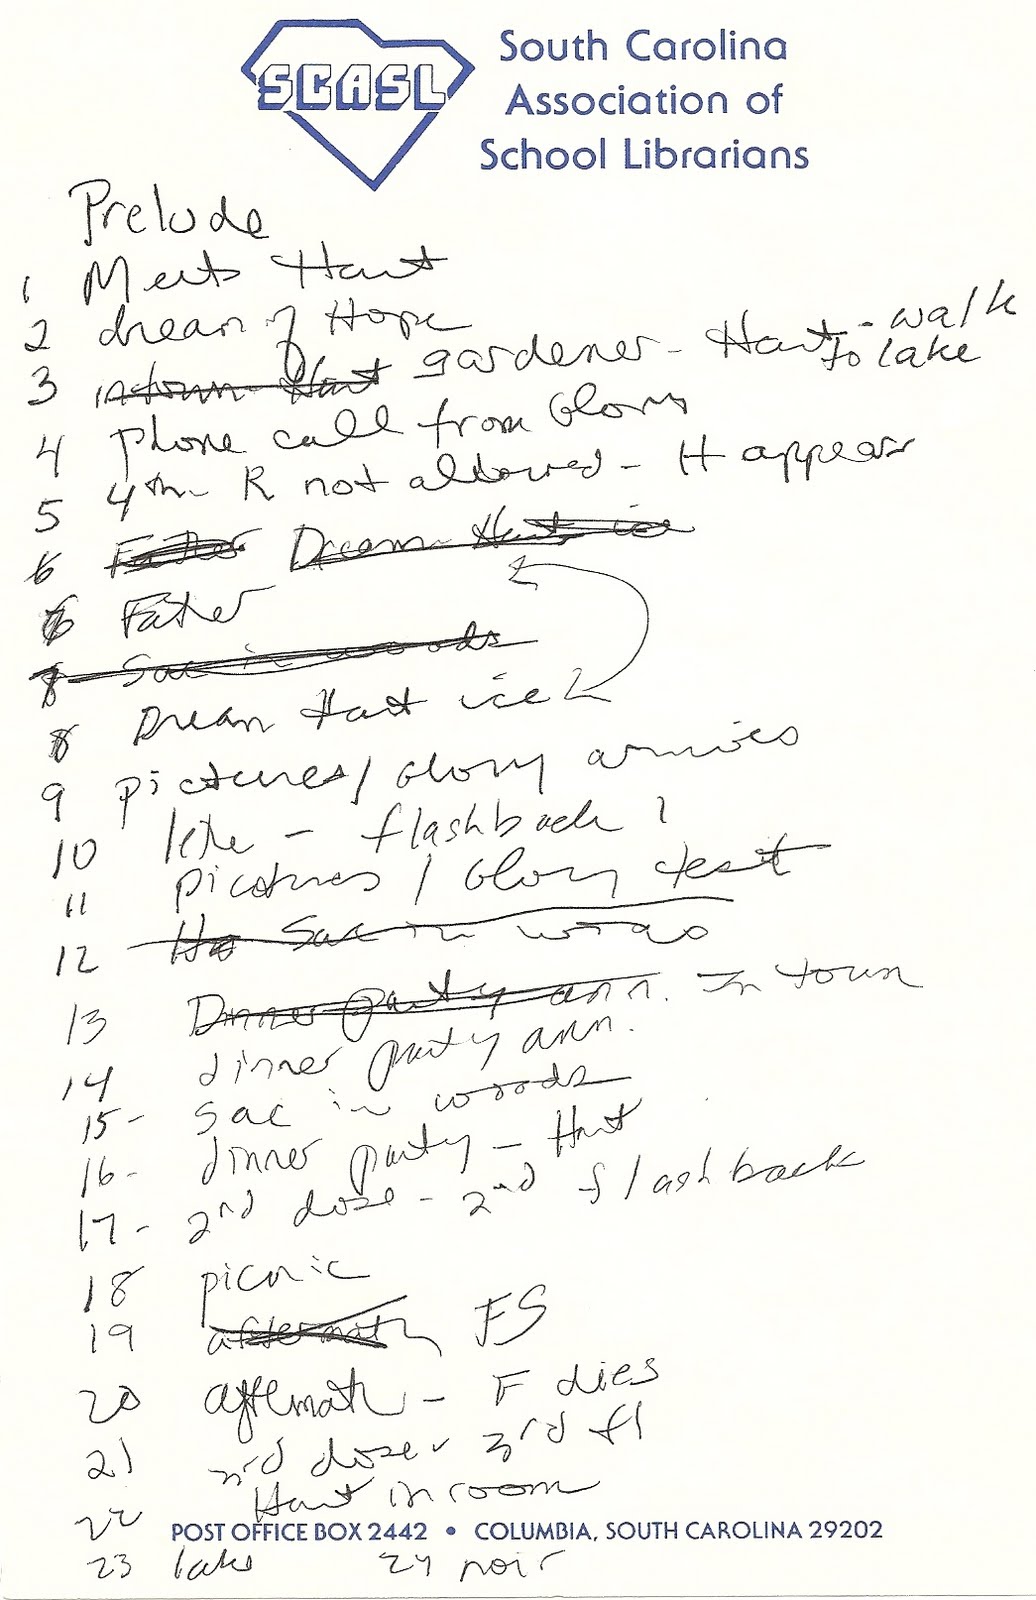 SCASL
South Carolina
Association of
School Librarians
Prelude
1 Meets Hart
2 dream of Hope
3 in town Hart gardener - Hart - walk to lake
4 phone call from Glory
5 4th R not allowed - H appears
6 Father Dream Hart ice
6 Father
Sac in woods
8 Dream Hart ice
9 pictures / Glory arrives
10 - flashback 1
11 pictures / Glory test
12 Sac in woods
13 Dinner party ann. In town
14 dinner party ann.
15- Sac in woods
16- dinner party - Hart
17- 2nd dose - 2nd flashback
18 picnic
19 aftermath FS
20 aftermath - F dies
21 3rd dose - 3rd fl
22 Hart in room
POST OFFICE BOX 2442 • COLUMBIA, SOUTH CAROLINA 29202
23 lake 24 noir